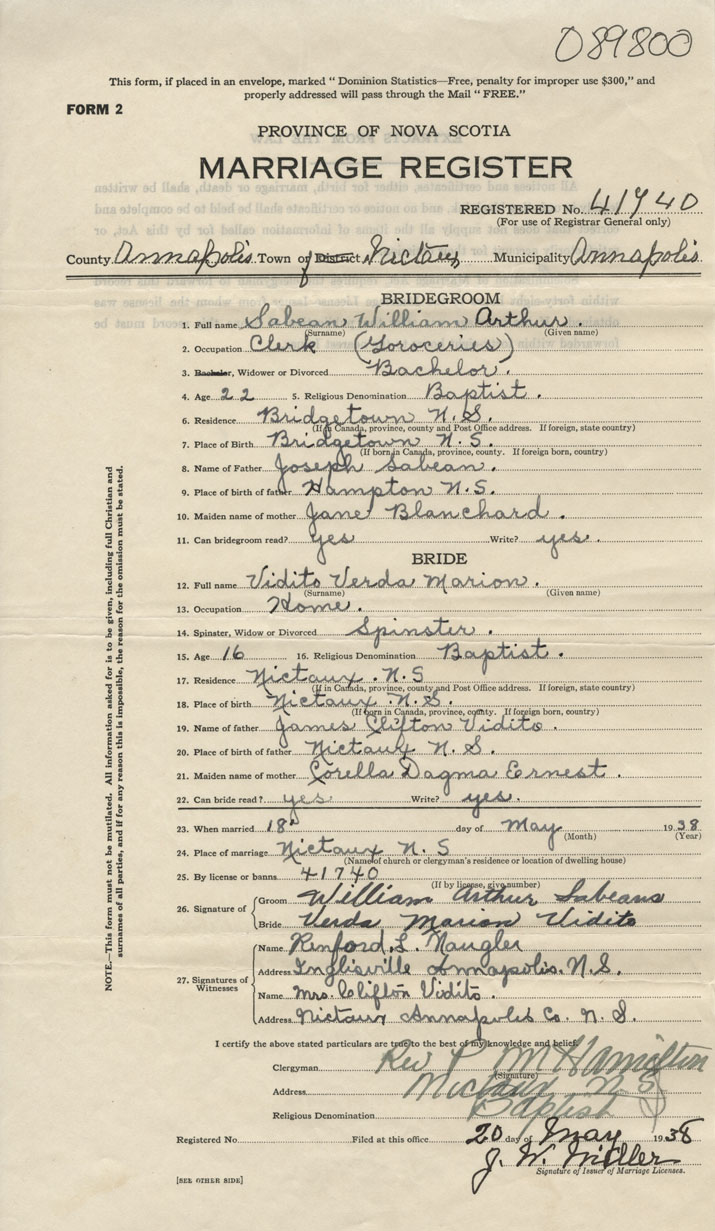 089800
This form, if placed in an envelope, marked " Dominion Statistics—Free, penalty for improper use $300," and
properly addressed will pass through the Mail " FREE."
FORM 2
PROVINCE OF NOVA SCOTIA
MARRIAGE REGISTER
REGISTERED No. 41740
(For use of Registrar General only)
County Annapolis Town of District Nictaux Municipality Annapolis.
BRIDEGROOM
1. Full name Sabean William Arthur.
(Surname) (Given name)
2. Occupation Clerk (Goroceries)
3. Bachelor, Widower or Divorced Bachelor.
4. Age 22 5. Religious Denomination Baptist.
6. Residence Bridgetown N.S.
(If in Canada, province, county and Post Office address. If foreign, state country)
7. Place of Birth Bridgetown N.S.
(If born in Canada, province, county. If foreign born, country)
8. Name of Father Joseph Sabean.
9. Place of birth of father Hampton N.S.
10. Maiden name of mother Jane Blanchard.
11. Can bridegroom read? yes Write? yes.
BRIDE
12. Full name Vidito Verda Marion.
(Surname) (Given name)
13. Occupation Home.
14. Spinster, Widow or Divorced Spinster.
15. Age 16 16. Religious Denomination Baptist.
17. Residence Nictaux. N.S
(If in Canada, province, county and Post Office address. If foreign, state country)
18. Place of birth Nictaux N.S.
(If born in Canada, province, county. If foreign born, country)
19. Name of father James Clifton Vidito.
20. Place of birth of father Nictaux N.S.
21. Maiden name of mother Corella Dagma Ernest.
22. Can bride read? yes Write? yes.
23. When married 18 day of May 1938
(Month) (Year)
24. Place of marriage Nictaux N.S
(Name of church or clergyman's residence or location of dwelling house)
25. By license or banns 41740
(If by license, give number)
26. Signature of
Groom William Arthur Sabeans
Bride Verda Marion Vidito
27. Signatures of Witnesses
Name Renford L. Naugler
Address Inglisville Annapolis. N.S.
Name Mrs. Clifton Vidito.
Address Nictaux Annapolis Co. N.S.
I certify the above stated particulars are true to the best of my knowledge and belief.
Clergyman Rev P M Hamilton
(Signature)
Address Nictaux N S
Religious Denomination Baptist
Registered No. Filed at this office 20 day of May 1938
J. W. Miller
Signature of Issuer of Marriage Licenses.
[SEE OTHER SIDE]
NOTE.—This form must not be mutilated. All information asked for is to be given, including full Christian and
surnames of all parties, and if for any reason this is impossible, the reason for the omission must be stated.